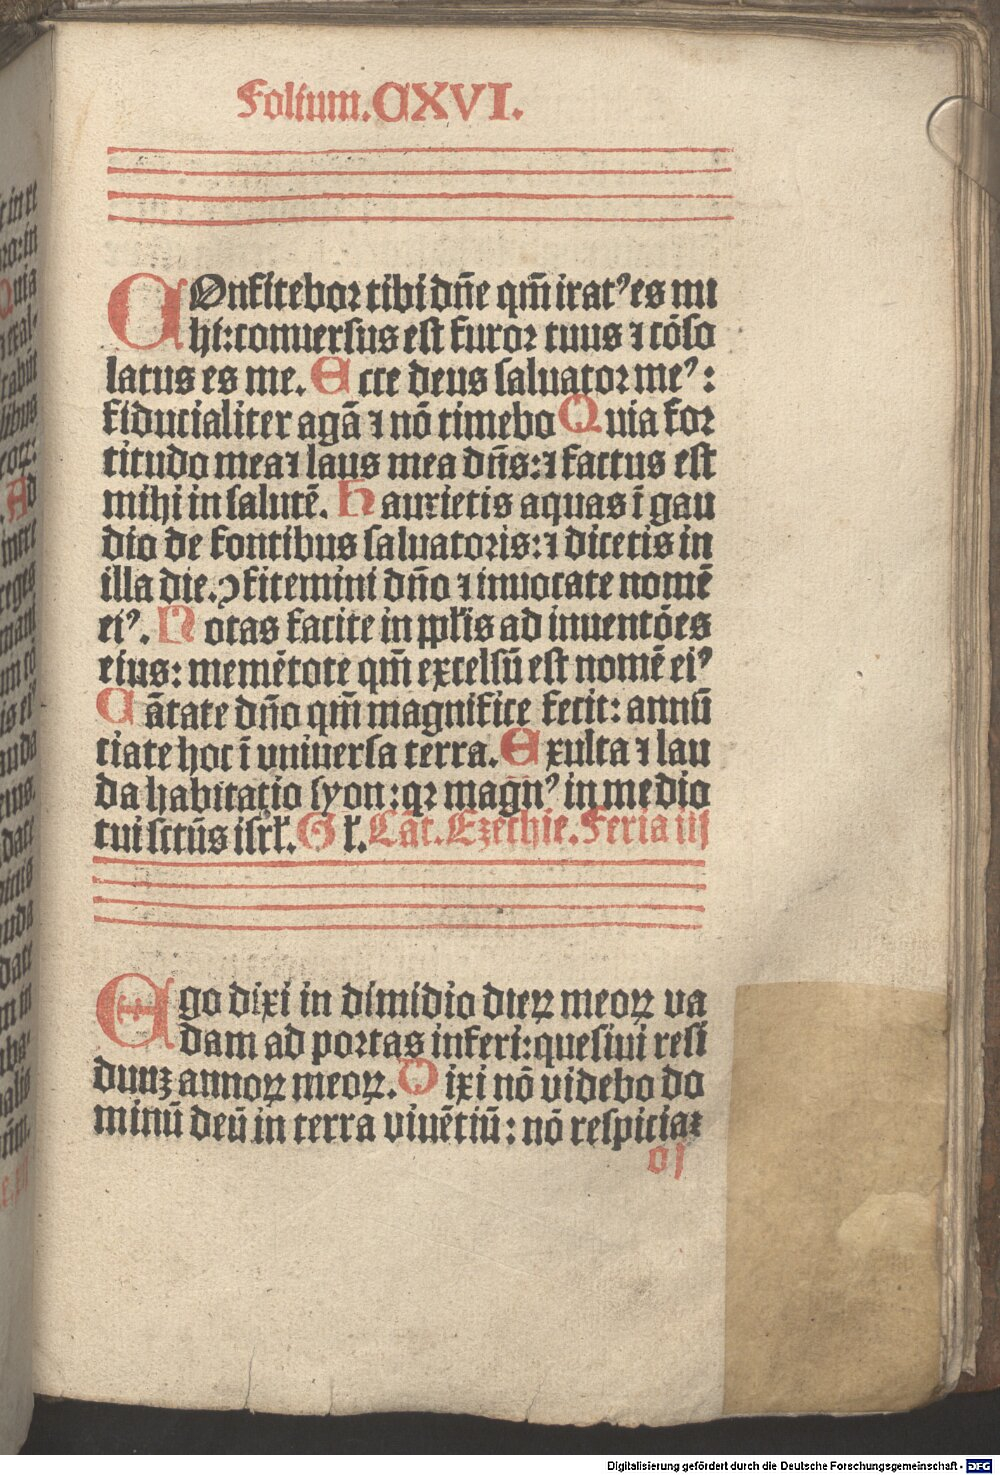 Folium.CXVI.
COnfitebor tibi dn̄e qm̄ iratꝰ es mi
hi: conuersus est furor tuus ⁊ cōso
latus es me. Ecce deus saluator meꝰ:
fiducialiter agā ⁊ nō timebo Quia for
titudo mea ⁊ laus mea dn̄s: ⁊ factus est
mihi in salutē. Haurietis aquas ī gau
dio de fontibus saluatoris: ⁊ dicetis in
illa die. ↄfitemini dn̄o ⁊ inuocate nomē
eiꝰ. Notas facite in ppl̄is ad inuentōes
eius: memētote qm̄ excelsū est nomē eiꝰ
Cātate dn̄o qm̄ magnifice fecit: annū
ciate hoc ī vniuersa terra. Exulta ⁊ lau
da habitatio syon: qꝛ magn̄ꝰ in medio
tui sctūs isrl̄. Gl̄. Cāt. Ezechie. Feria iij
EGo dixi in dimidio dieꝝ meoꝝ va
dam ad portas inferi: quesiui resi
duuꝫ annoꝝ meoꝝ. Dixi nō videbo do
minū deū in terra viuētiū: nō respiciaꝫ
o j
Digitalisierung gefördert durch die Deutsche Forschungsgemeinschaft - DFG